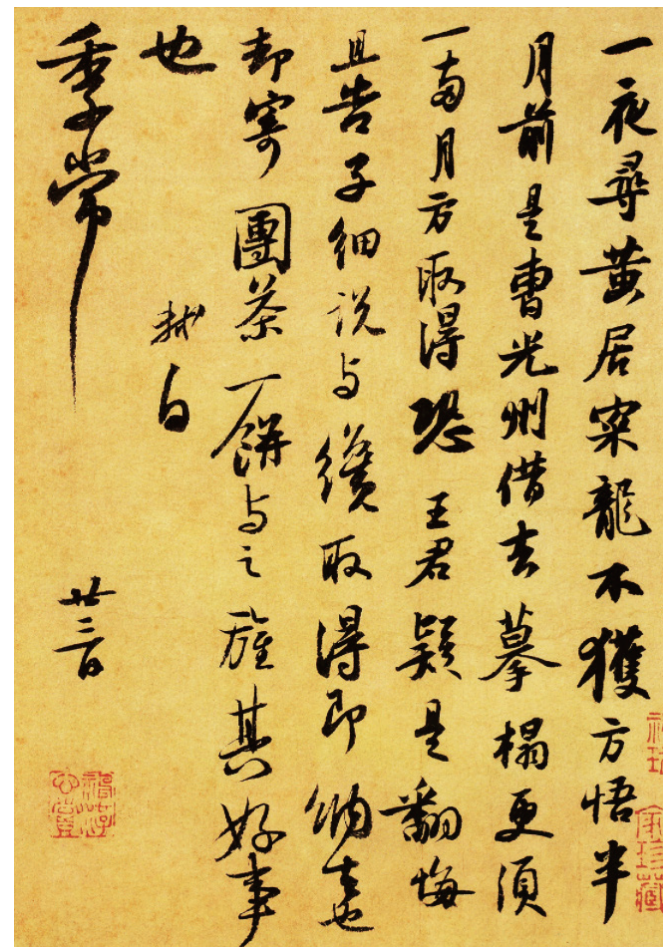 一夜尋黄居寀龍不獲方悟半
月前是曹光州借去摹搨更須
一兩月方取得恐王君疑是翻悔
且告子細說与纔取得即納去也
却寄團茶一餅与之旌其好事
也
軾白
季常
廿三日